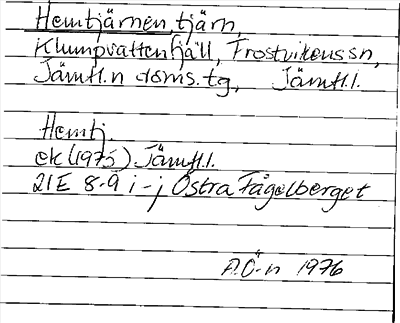 Hemtjärnen, tjärn,
Klumpvattenfjäll, Frostvikens sn,
Jämtl.n doms.tg, Jämtl.l.
Hemtj.
ek (1975) Jämtl.l.
21E 8-9 i-j Östra Fågelberget
A.Ö-n 1976